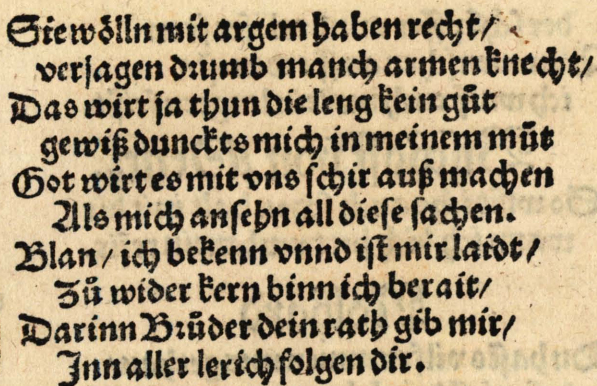 Sie wölln mit argem haben recht/
verſagen drumb manch armen knecht/
Das wirt ja thun die leng kein gůt
gewiß dunckts mich in meinem můt
Got wirt es mit vns ſchir auß machen
Als mich anſehn all dieſe ſachen.
Blan/ ich bekenn vnnd iſt mir laidt/
Zů wider kern binn ich berait/
Darinn Brůder dein rath gib mir/
Inn aller ler ich folgen dir.